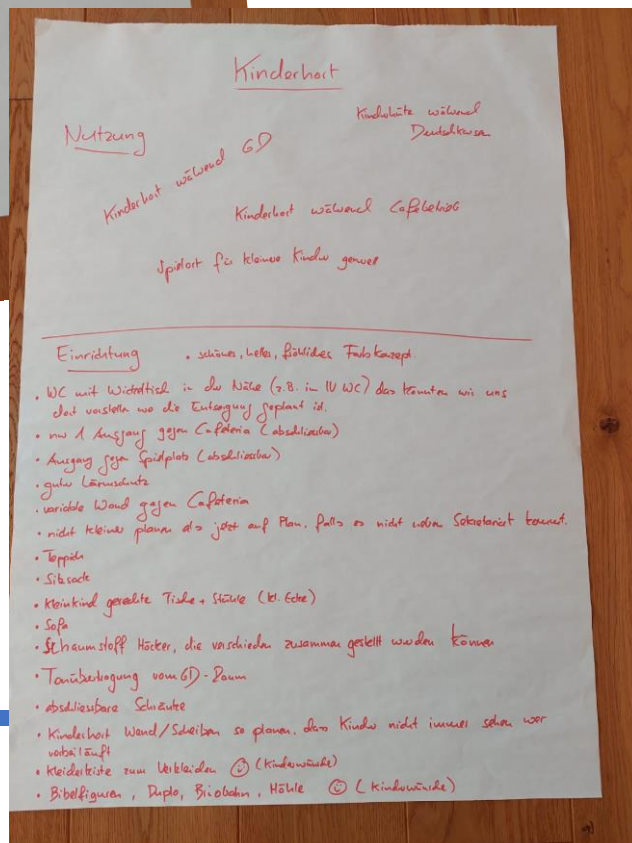 Kinderhort
Nutzung
Kinderhüte während
Deutschkursen
Kinderhort während GD
Kinderhort während Cafébetrieb
Spielort für kleine Kinder generell
Einrichtung • schönes, helles, fröhliches Farbkonzept.
• WC mit Wickeltisch in der Nähe (z.B. im IV WC) das könnten wir uns
dort vorstellen wo die Entsorgung geplant ist.
• nur 1 Ausgang gegen Cafeteria (abschliessbar)
• Ausgang gegen Spielplatz (abschliessbar)
• guter Lärmschutz
• variable Wand gegen Cafeteria
• nicht kleiner planen als jetzt auf Plan, falls es nicht neben Sekretariat kommt.
• Teppich
• Sitzsack
• Kleinkind gerechte Tische + Stühle (kl. Ecke)
• Sofa
• Schaumstoff Höcker, die verschieden zusammen gestellt werden können
• Tonübertragung vom GD-Raum
• abschliessbare Schränke
• Kinderhort Wand/Scheiben so planen, dass Kinder nicht immer sehen wer
vorbeiläuft
• Kleiderkiste zum Verkleiden ☺ (Kinderwünsche)
• Bibelfiguren, Duplo, Briobahn, Höhle ☺ (Kinderwünsche)